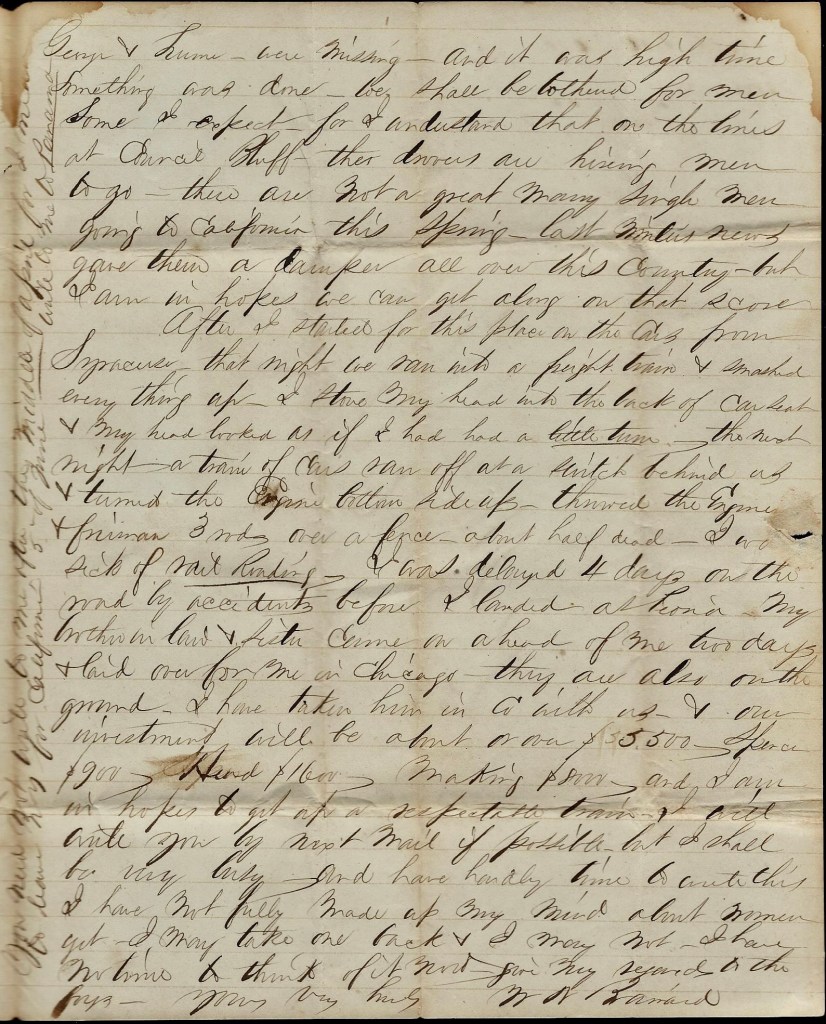 George & Hume - were missing - and it was high time
something was done - we shall be bothered for men
Some I expect - for I understand that on the lines
at Council Bluff - ther drovers are hireing men
to go - there are not a great many single men
going to California this Spring - last winters news
gave them a damper all over this Country - but
I am in hopes we can get along on that score
After I started for this place on the Cars from
Syracuse - that night we ran into a freight train & smashed
every thing up - I stove my head into the back of Car seat
& my head looked as if I had had a little turn - the next
night - a train of Cars ran off at a switch behind us
& turned the Engine bottom side up - throwed the Engineer
& fireman 3 rods over a fence - about half dead - I was
sick of rail Roading - I was delayed 4 days on the
road by accidents before I landed at Peoria My
brother in law & sister Came on ahead of me two days
& laid over for me in Chicago - they are also on the
ground - I have taken him in Co with us - & our
investment will be about or over $5.500 - Spence
$900 - $1600 - Making $8000 - and I am
in hopes to get up a respectable train - I will
write you by next Mail if possible - but I shall
be very busy - and have hardly time to write this
I have not fully made up my mind about women
yet - I may take one back & I may not - I have
no time to think of it now - give my regards to the
boys - yours very truly W N Ranard
You need not write to me after the middle of april for I mean
to leave N.Y. for California 5 of June write to me to Panama